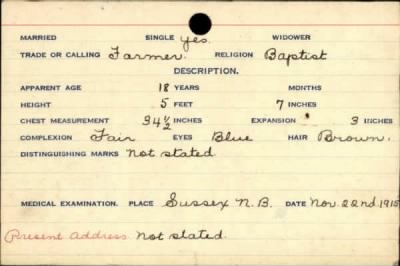 MARRIED SINGLE yes. WIDOWER
TRADE OR CALLING Farmer. RELIGION Baptist
DESCRIPTION.
APPARENT AGE 18 YEARS MONTHS
HEIGHT 5 FEET 7 INCHES
CHEST MEASUREMENT 34½ INCHES EXPANSION 3 INCHES
COMPLEXION Fair EYES Blue HAIR Brown.
DISTINGUISHING MARKS Not stated
MEDICAL EXAMINATION. PLACE Sussex N.B. DATE Nov. 22nd 1915
Present Address Not stated.